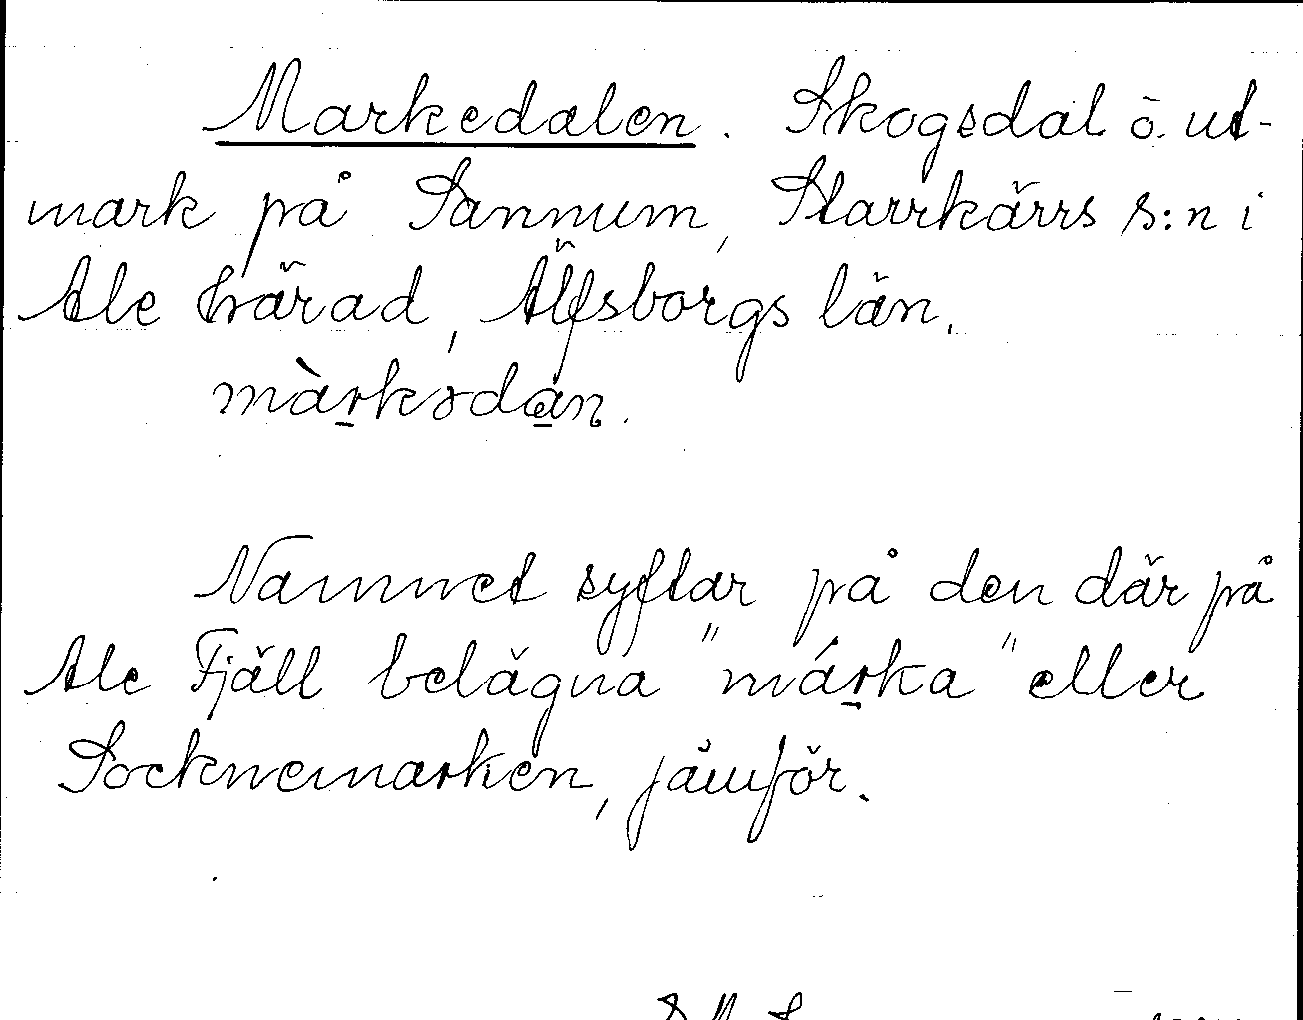 Markedalen. Skogsdal ö. ut-
mark på Sannum, Starrkärrs s:n i
Ale härad, Älfsborgs län.
màrkɘdan.
Namnet syftar på den där på
Ale Fjäll belägna "márka" eller
Socknemarken, jämför.